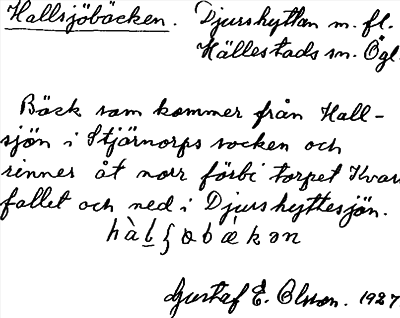 Hallsjöbäcken. Djurshyttan m. fl.
Hällestads sn. Ögl.
Bäck som kommer från Hall-
sjön i Stjärnorps socken och
rinner åt norr förbi torpet Kvarn
fallet och ned i Djurshyttesjön.
Gustaf E. Olsson. 1927